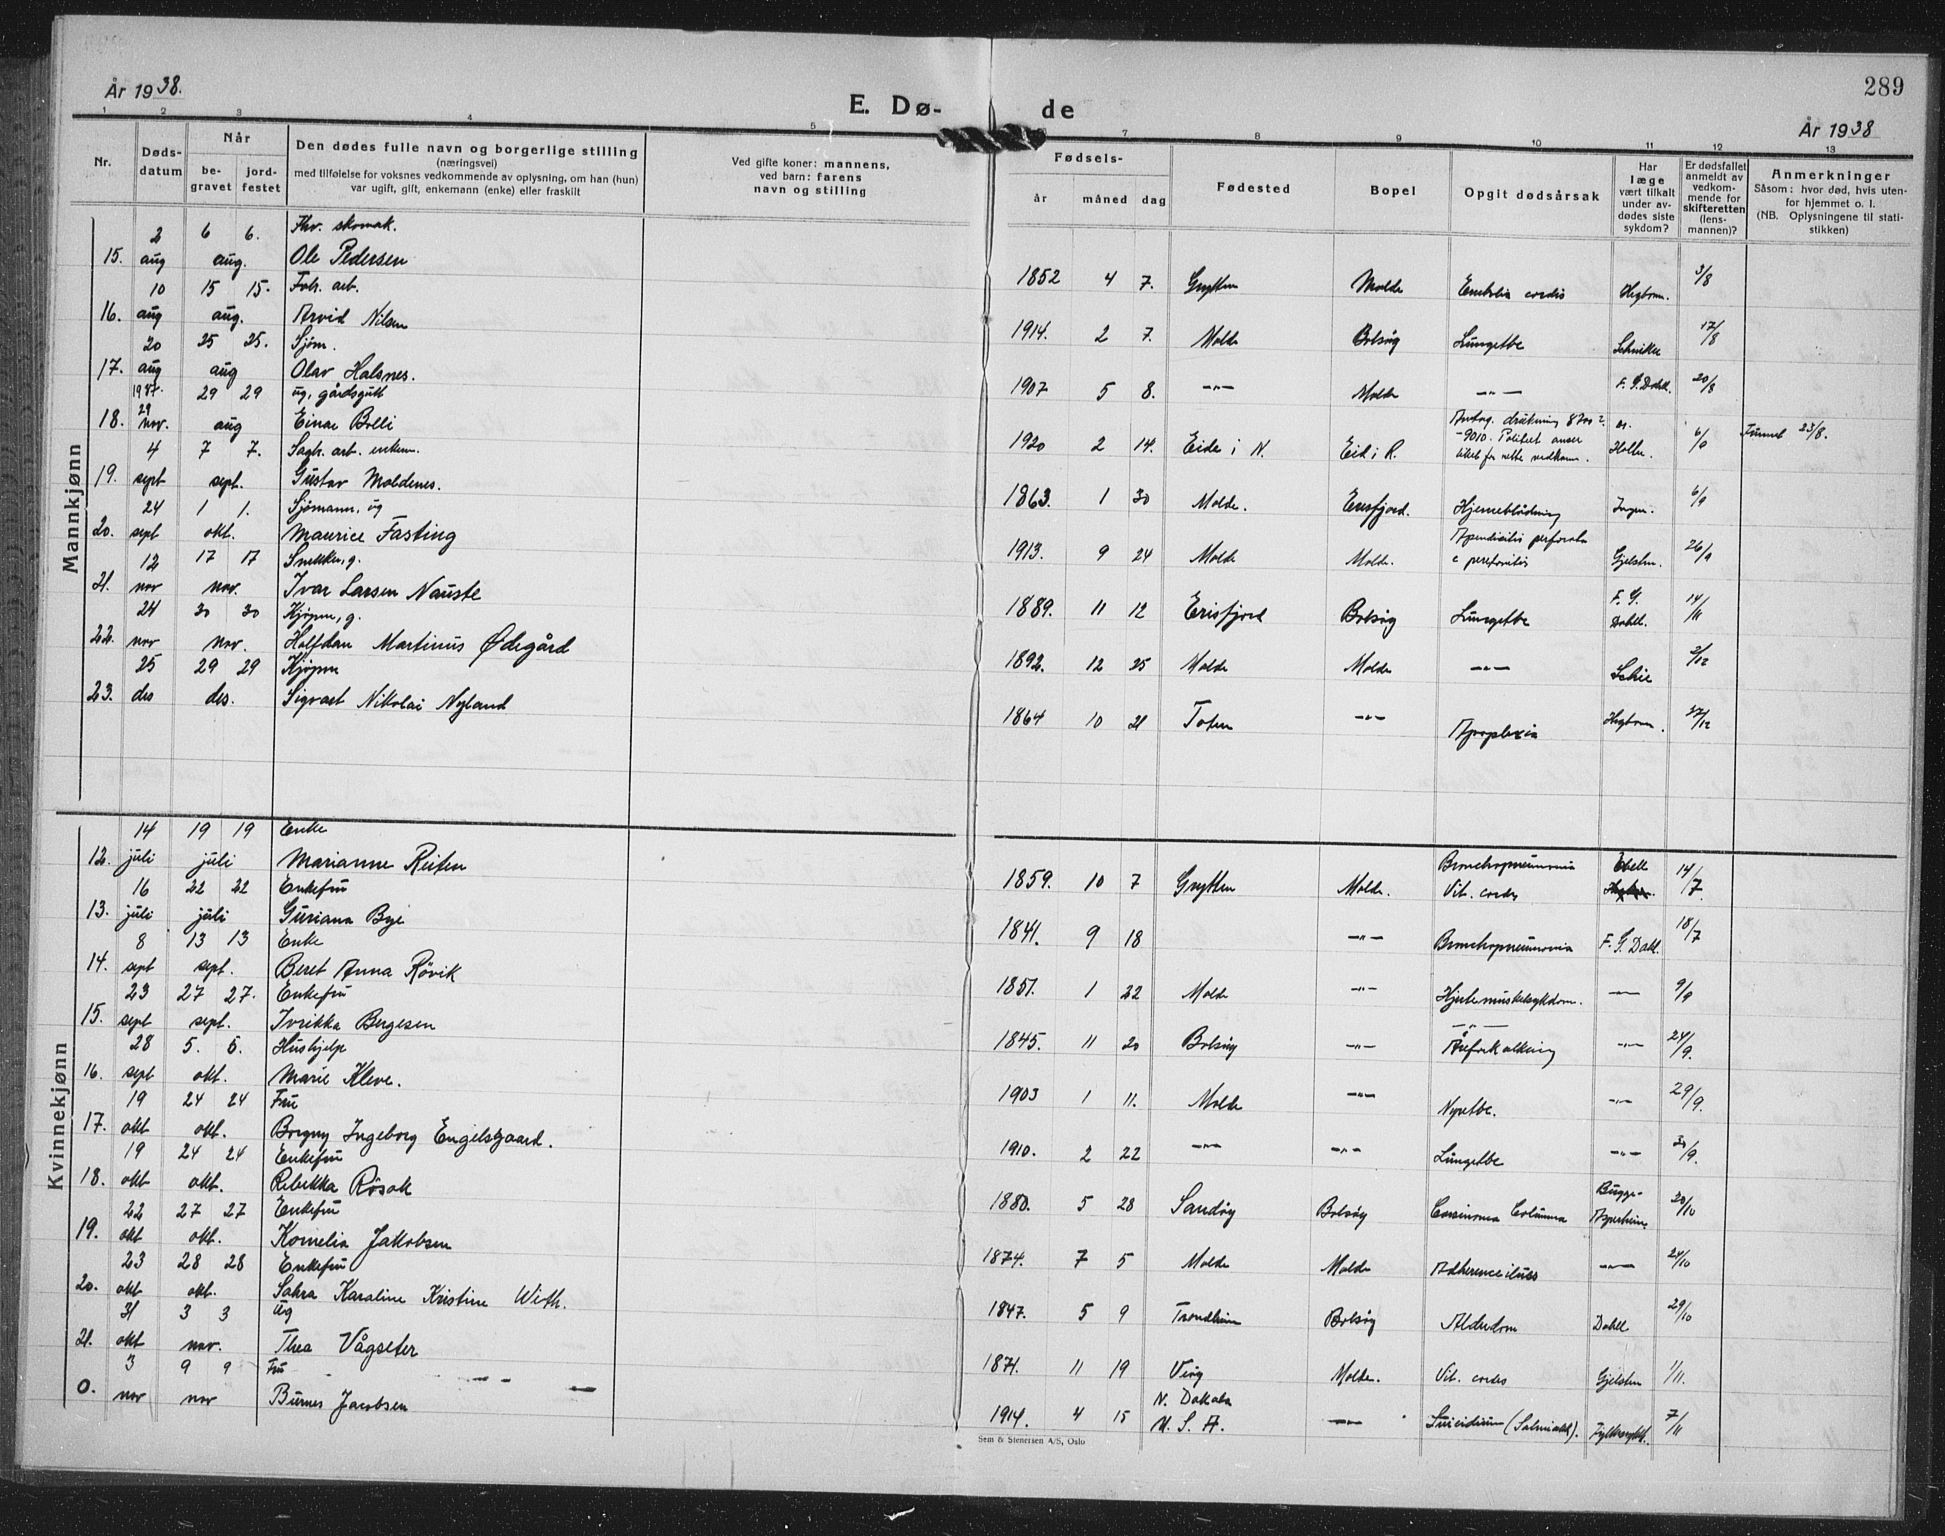 År 1938.
E. Dø-
de
289
År 1938
1 2 3 4 5 6 7 8 9 10 11 12 13
Nr.
Døds-
datum
Når
be-
gravet
jord-
festet
Den dødes fulle navn og borgerlige stilling
(næringsvei)
med tilføielse for voksnes vedkommende av oplysning, om han (hun)
var ugift, gift, enkemann (enke) eller fraskilt
Ved gifte koner: mannens,
ved barn: farens
navn og stilling
Fødsels-
år måned dag
Fødested
Bopel
Opgit dødsårsak
Har
læge
vært tilkalt
under av-
dødes siste
sykdom?
Er dødsfallet
anmeldt av
vedkom-
mende for
skifteretten
(lens-
mannen)?
Anmerkninger
Såsom: hvor død, hvis uten-
for hjemmet o. l.
(NB. Oplysningene til stati-
stikken)
Mannkjønn
2 6 6. Fhv. skomak.
15. aug aug. Ole Pedersen
1852 4 7. Grytten Molde Embolia cordis 3/8
10 15 15. Fabr. arb.
16. aug aug. Arvid Nilsen
1914. 2 7. Molde Bolsøy Lungetbc 17/8
20 25 25. Sjøm.
17. aug aug Olav Halsnes.
1907 5 8. —"— Molde —"— F. G. Dahl. 20/8
1937. 29 29 ug. gårdsgutt
29
18. nov. aug Einar Bolli
1920 2 14. Eide i N. Eid i R. Antag. drukning 6/9 Funnet 23/8.
4 7 7. Sagh. arb. enkem.
19. sept sept. Gustav Moldenes.
1863. 1 30 Molde. Eresfjord. Hjerneblødning Ingen. 6/9
24 1 1. Sjømann, ug
20. sept okt. Maurice Fasting
1913. 9 24 Molde Molde. Apendisitis perforata Gjelsten. 26/9
12 17 17 Snekker, g.
21. nov nov. Ivar Larsen Nauste
1889. 11 12 Erisfjord Bolsøy Lungetbc F. G. Dahl. 14/11
24 30 30 Kjøpm, g.
22. nov nov. Halfdan Martinus Ødegård
1892. 12 25 Molde Molde —"— Schie 2/12
25 29 29 Kjøpm
23. des des. Sigvart Nikolai Nyland
1864 10 21 Toten —"— Apoplexia 27/12
Kvinnekjønn
14 19 19 Enke
12. juli juli Marianne Reiten
1859. 10 7 Grytten Molde. Bronchopneumonia Vit. cordis 14/7
16 22 22 Enkefru
13. juli juli Guriana Bye
1841. 9 18 —"— Bronchopneumonia F. G. Dahl. 18/7
8 13 13 Enke
14. sept sept. Beret Anna Røvik
1851. 1 22 Molde —"— Hjertemuskelsykdom. —"— 9/9
23 27 27. Enkefru
15. sept sept. Iverikka Bergesen
1845. 11 20 Bolsøy —"— —"— Åreforkalkning —"— 24/9.
28 5. 5. Hushjelp
16. sept okt. Marie Kleve.
1903 1 11. Molde —"— Nyretbc. —"— 29/9.
19 24 24 Fru
17. okt okt. Borgny Ingeborg Engelsgaard.
1910. 2 22 —"— —"— Lungetbc —"— 30/9.
19 24 24 Enkefru
18. okt okt. Rebekka Røsok
1880. 5 28 Sandøy Bolsøy Carsinoma Columna Bugge- 20/10
22 27 27 Enkefru
19. okt okt. Kornelia Jakobsen
1874. 7 5 Molde Molde Adherenceileus —"— 24/10
23 28 28 Enkefru
20. okt okt. Sahra Karaline Kristine With.
1847. 5 9 Trondheim Bolsøy Alderdom Dahll 29/10
31 3 3 ug
21. okt nov. Thea Vågseter
1871. 11 19 Veøy Molde. Vit. cordis Gjelsten 1/11.
3 9 9 Fru
0. nov nov Burnes Jacobsen
1914. 4 15 N. Dakota U. S. A. —"— Suicidium (Salmiakk). 7/11
Sem & Stenersen A/S, Oslo